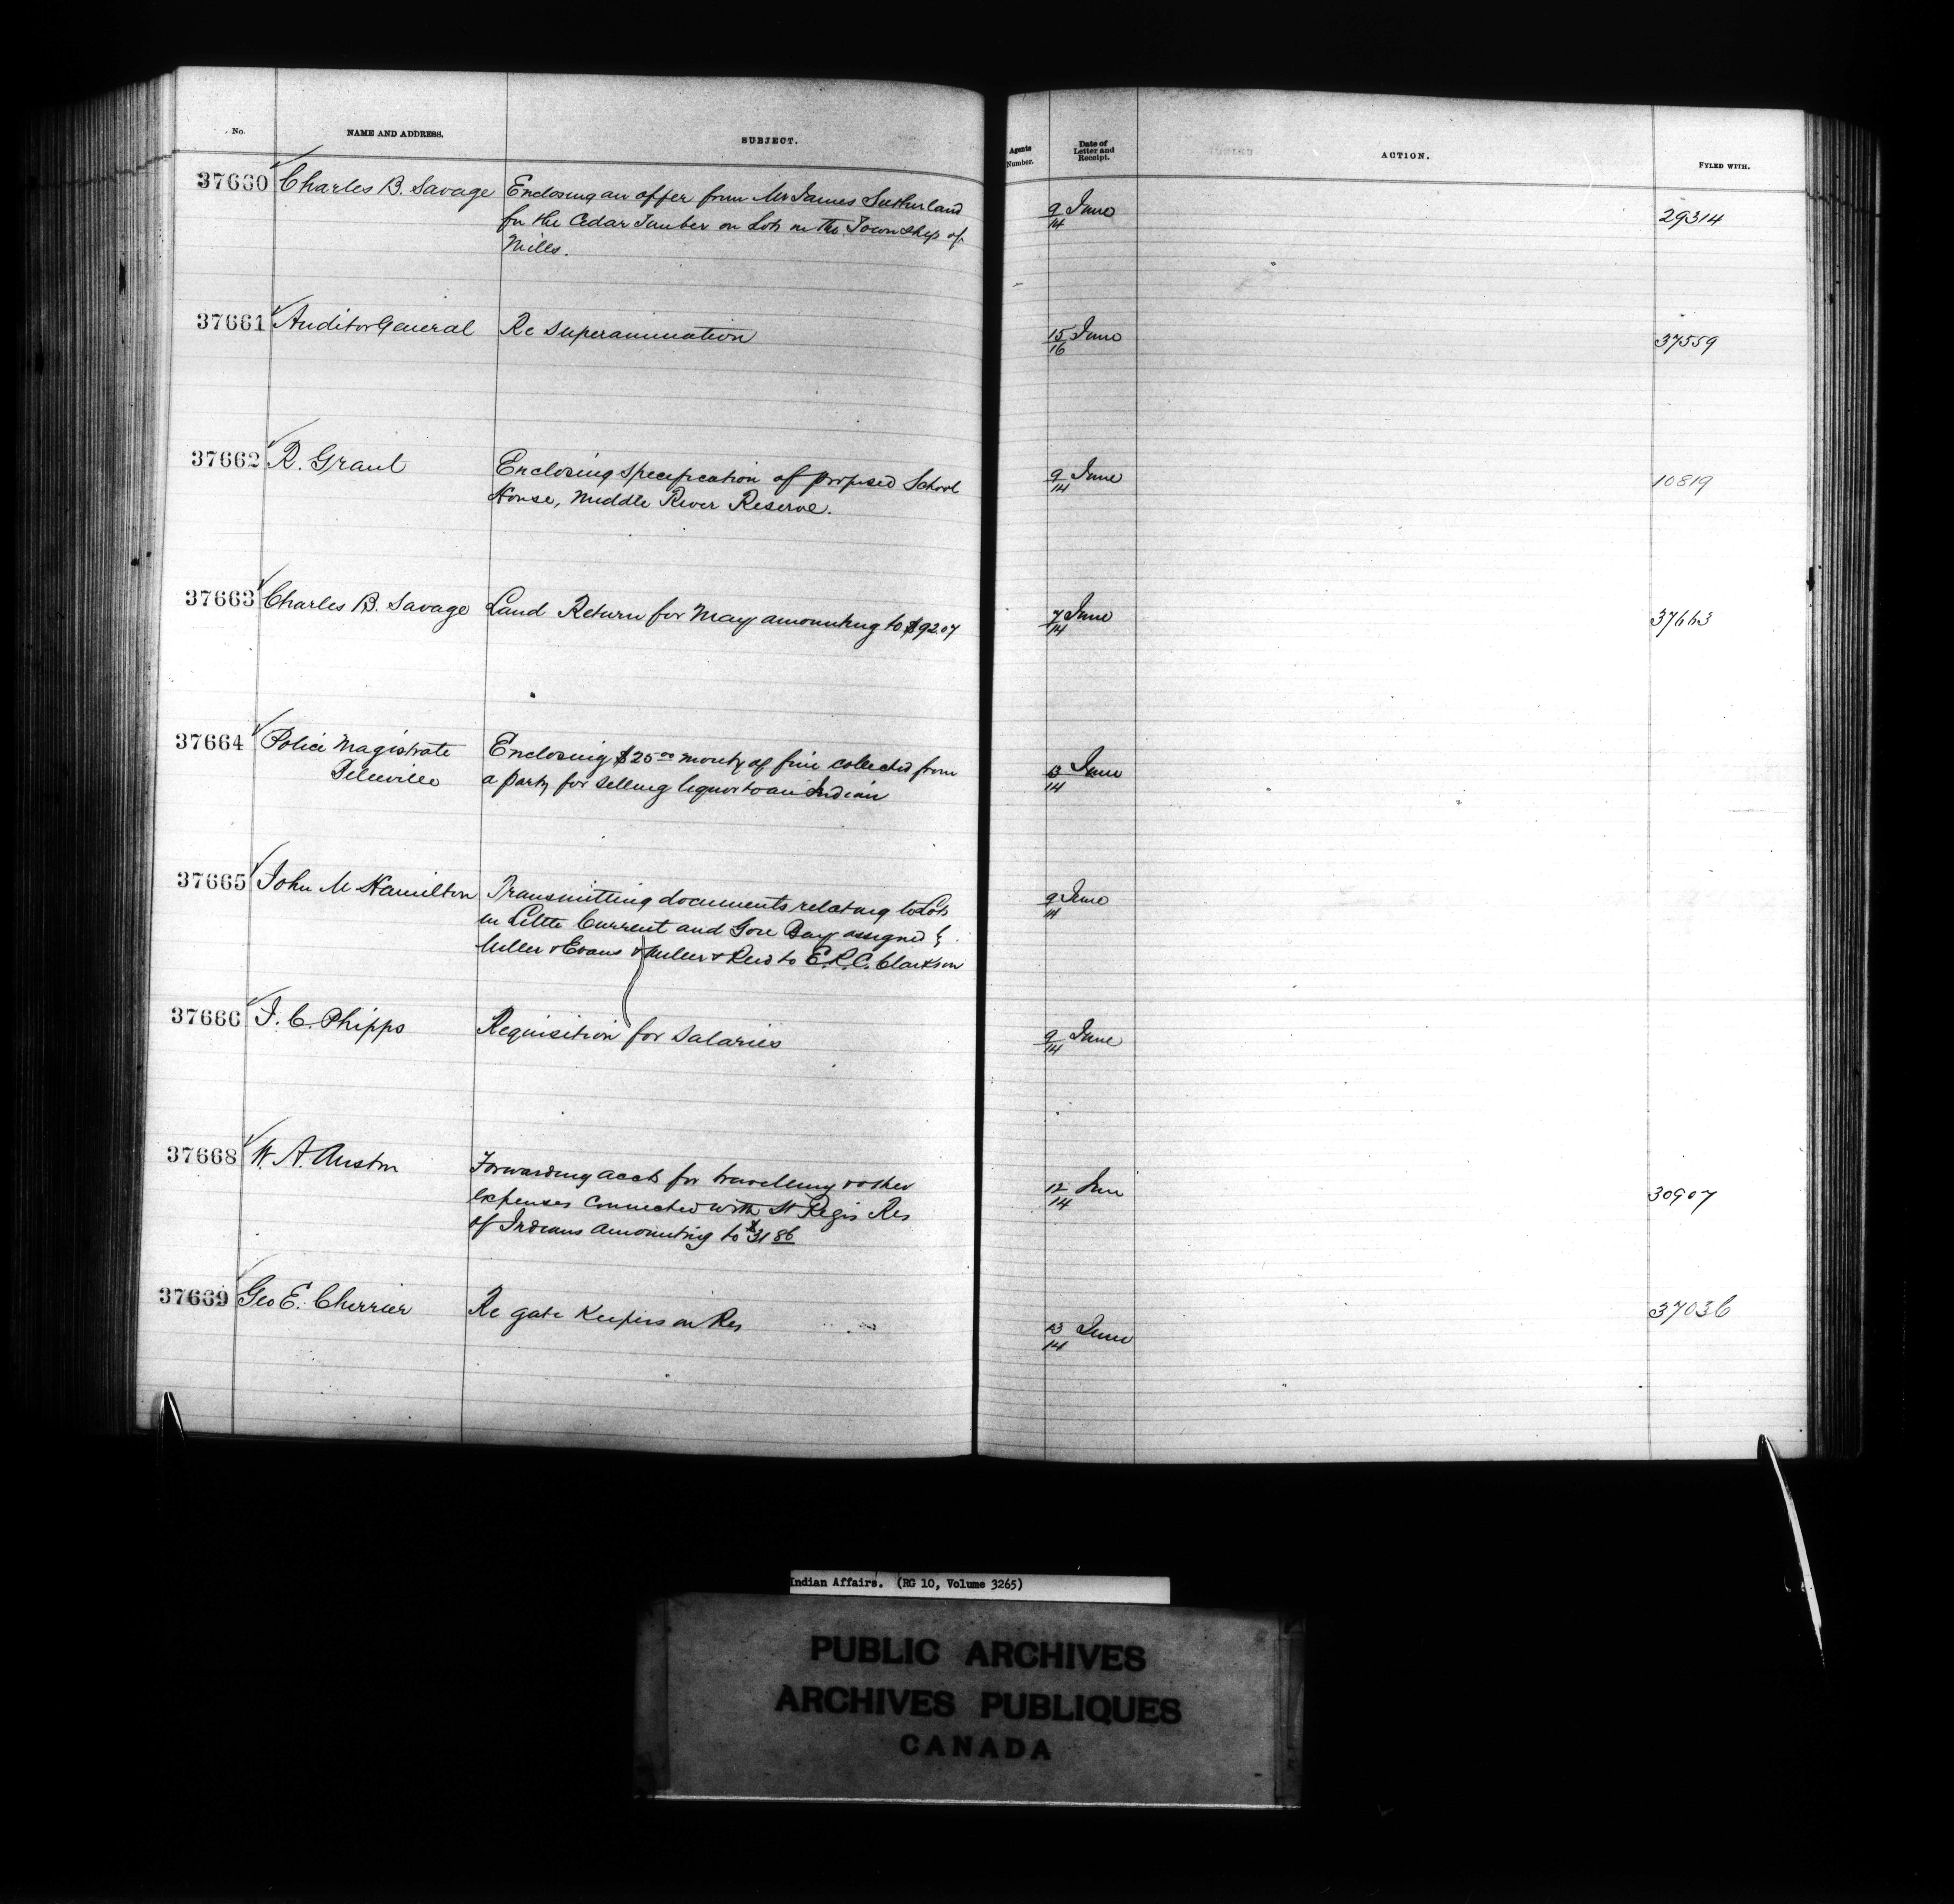 No. NAME AND ADDRESS. SUBJECT. Agents Number. Date of Letter and Receipt. ACTION. FYLED WITH.
37660 Charles B. Savage Enclosing an offer from Mr James Sutherland 9/14 June 29314
for the Cedar Timber on Lots in the Township of
Mills.
37661 Auditor General Re Superannuation 15/16 June 37559
37662 R. Grant Enclosing specification of proposed School 9/14 June 10819
House, Middle River Reserve.
37663 Charles B. Savage Land Return for May amounting to $92.07 7/14 June 37663
37664 Police Magistrate Enclosing $25 00 moiety of fine collected from 13/14 June
Belleville a party for selling liquor to an Indian
37665 John M Hamilton Transmitting documents relating to Lots 9/14 June
in Little Current and Gore Bay assigned by
Miller & Evans & Miller & Reid to E.R.C. Clarkson
37666 J. C. Phipps Requisition for Salaries 9/14 June
37668 W. A. Austin Forwarding accts for travelling & other 12/14 June 30907
expenses connected with St Regis Res
of Indians amounting to $31 86
37669 Geo E. Cherrier Re gate Keepers on Res 13/14 June 37036
Indian Affairs. (RG 10, Volume 3265)
PUBLIC ARCHIVES
ARCHIVES PUBLIQUES
CANADA